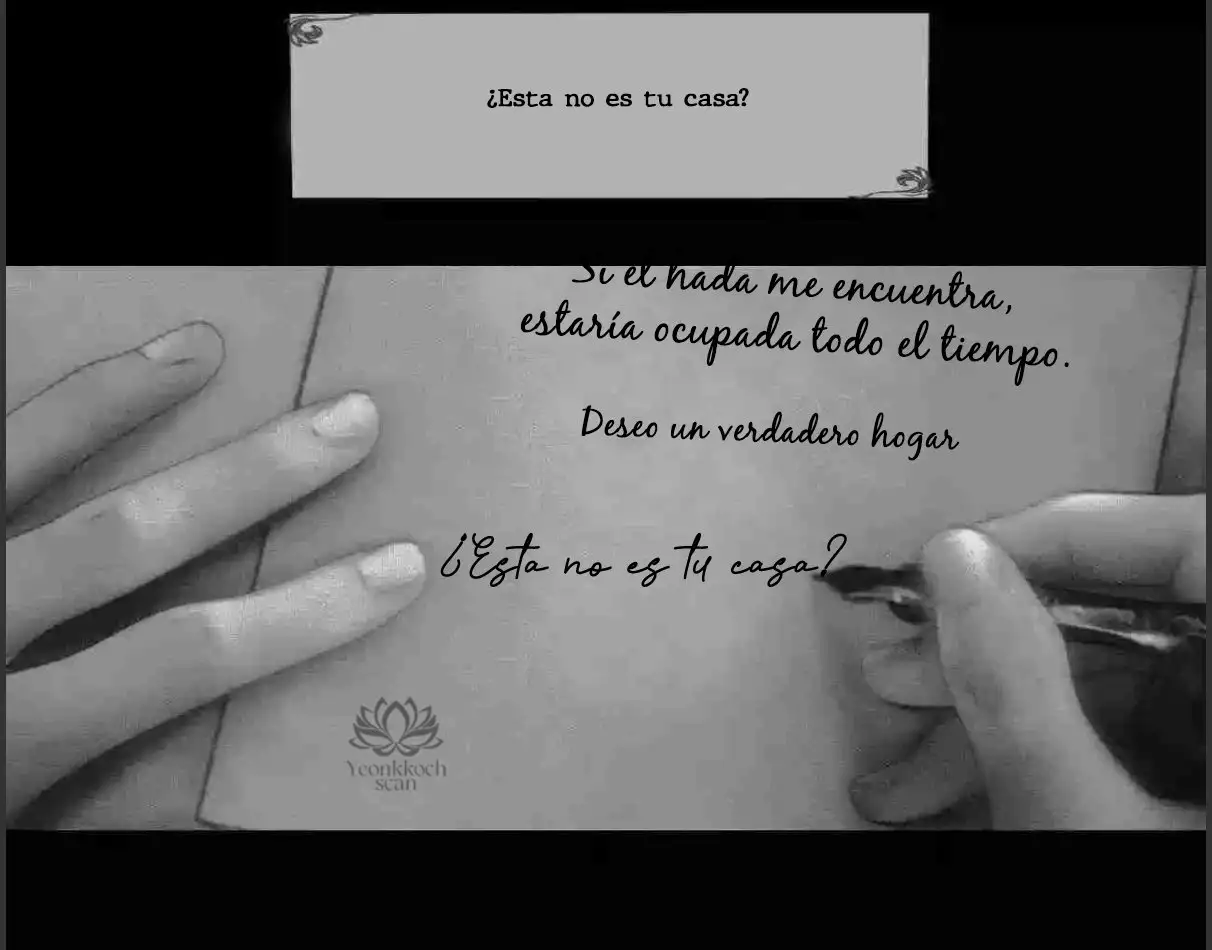 ¿Esta no es tu casa?
Si el hada me encuentra,
estaría ocupada todo el tiempo.
Deseo un verdadero hogar
¿Esta no es tu casa?
Yeonkkoch
scan